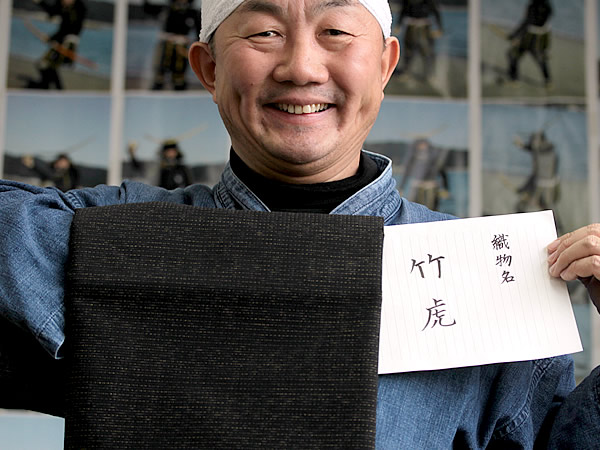 織物名
竹虎